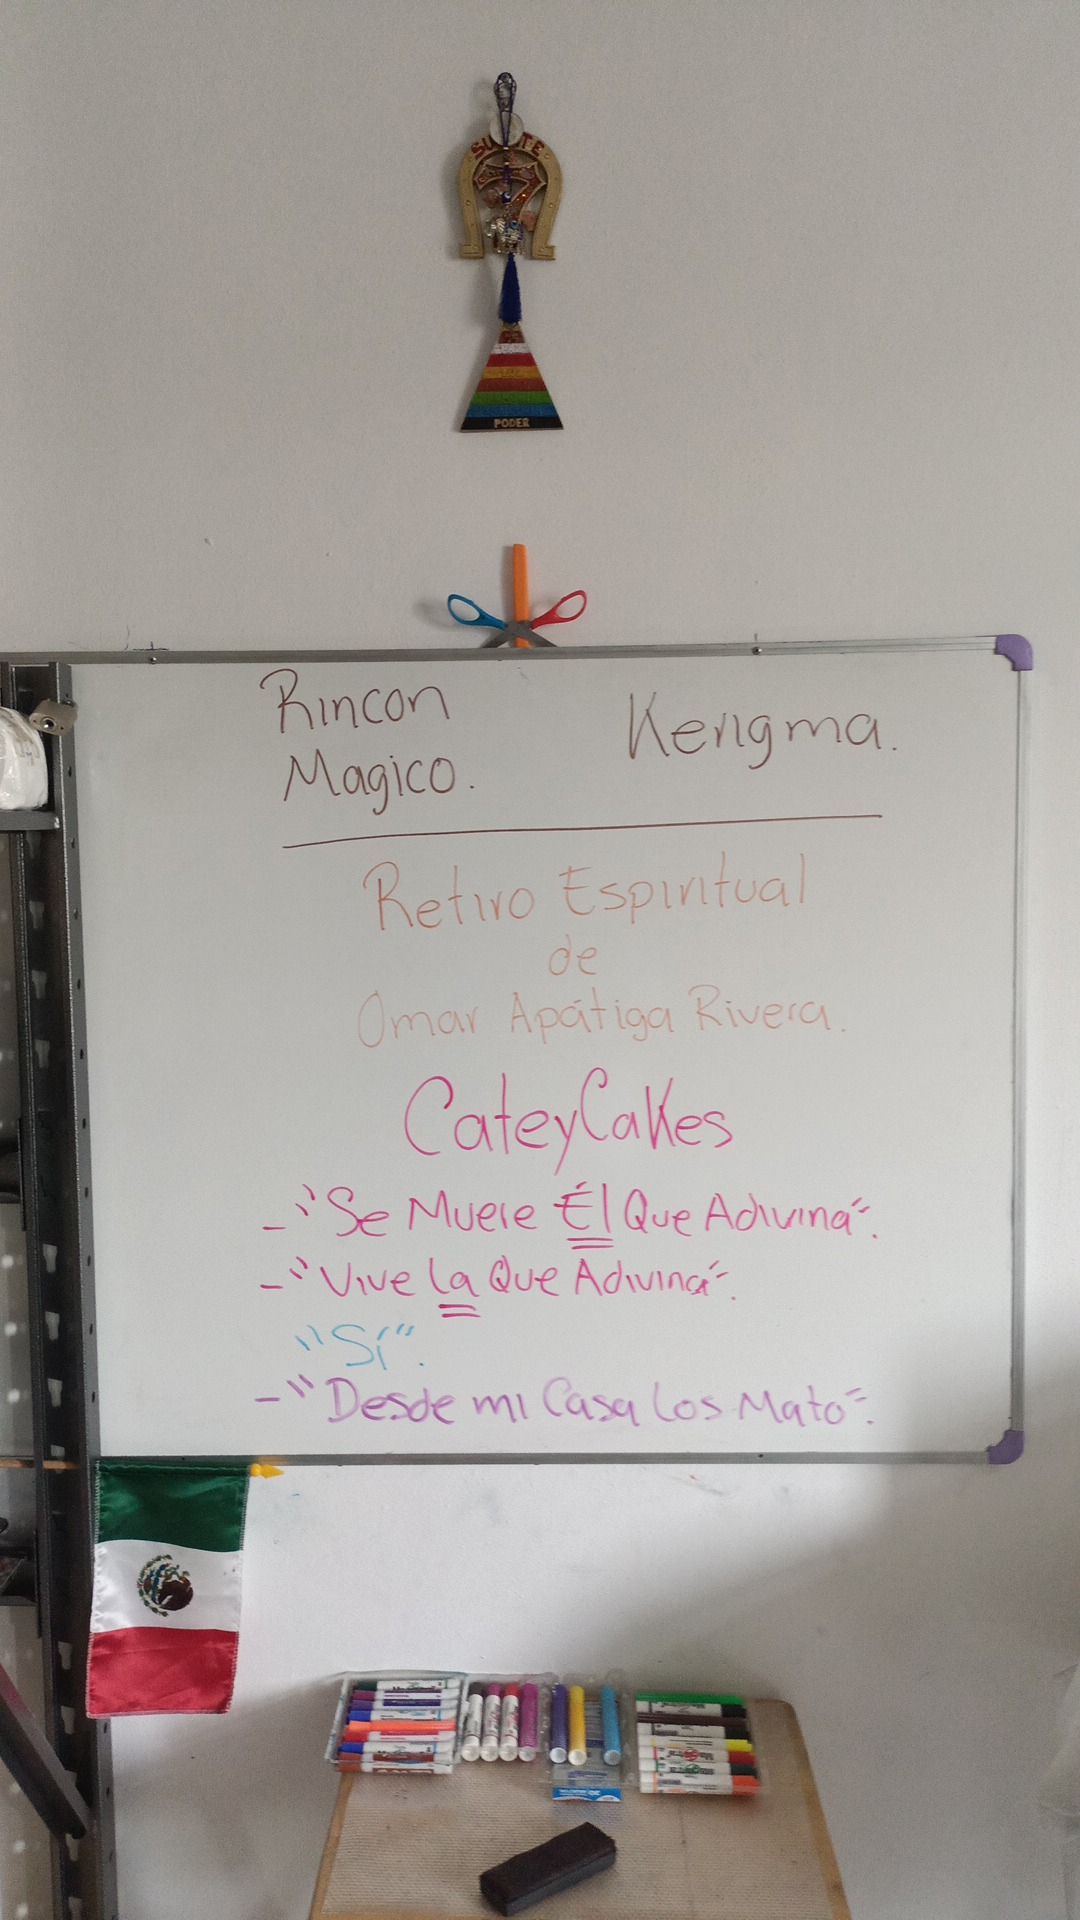 SUERTE
PODER
Rincon
Magico.
Kerigma.
Retiro Espiritual
de
Omar Apátiga Rivera.
CateyCakes
- "Se Muere Él Que Adivina".
- "Vive la Que Adivina".
"Sí".
- "Desde mi Casa los Mato".